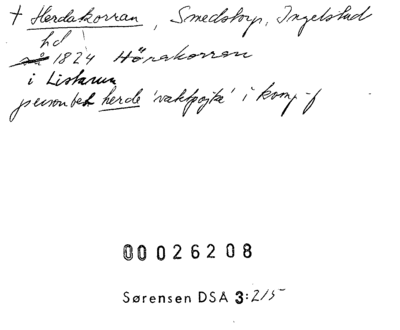 † Herdakorran, Smedstorp, Ingelstad
hd
så 1824 Hörakorran
i Listarum
personbet herde 'vaktpojke' i komp-f
00026208
Sørensen DSÅ 3:215